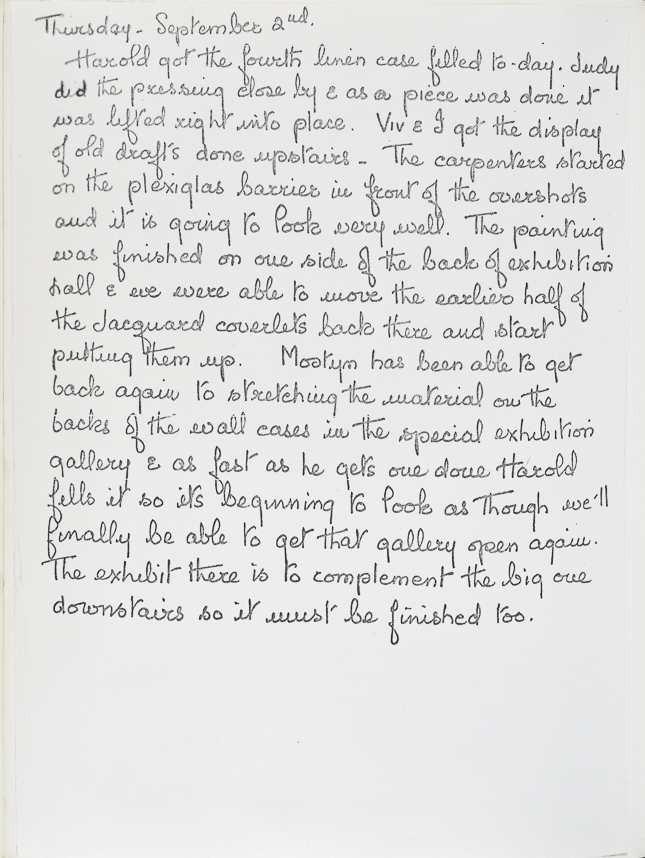 Thursday - September 2nd.
Harold got the fourth linen case filled to-day. Judy
did the pressing close by & as a piece was done it
was lifted right into place. Viv & I got the display
of old drafts done upstairs - The carpenters started
on the plexiglas barrier in front of the overshots
and it is going to look very well. The painting
was finished on one side of the back of exhibition
hall & we were able to move the earlier half of
the Jacquard coverlets back there and start
putting them up. Mostyn has been able to get
back again to stretching the material on the
backs of the wall cases in the special exhibition
gallery & as fast as he gets one done Harold
fills it so it's beginning to look as though we'll
finally be able to get that gallery open again.
The exhibit there is to complement the big one
downstairs so it must be finished too.